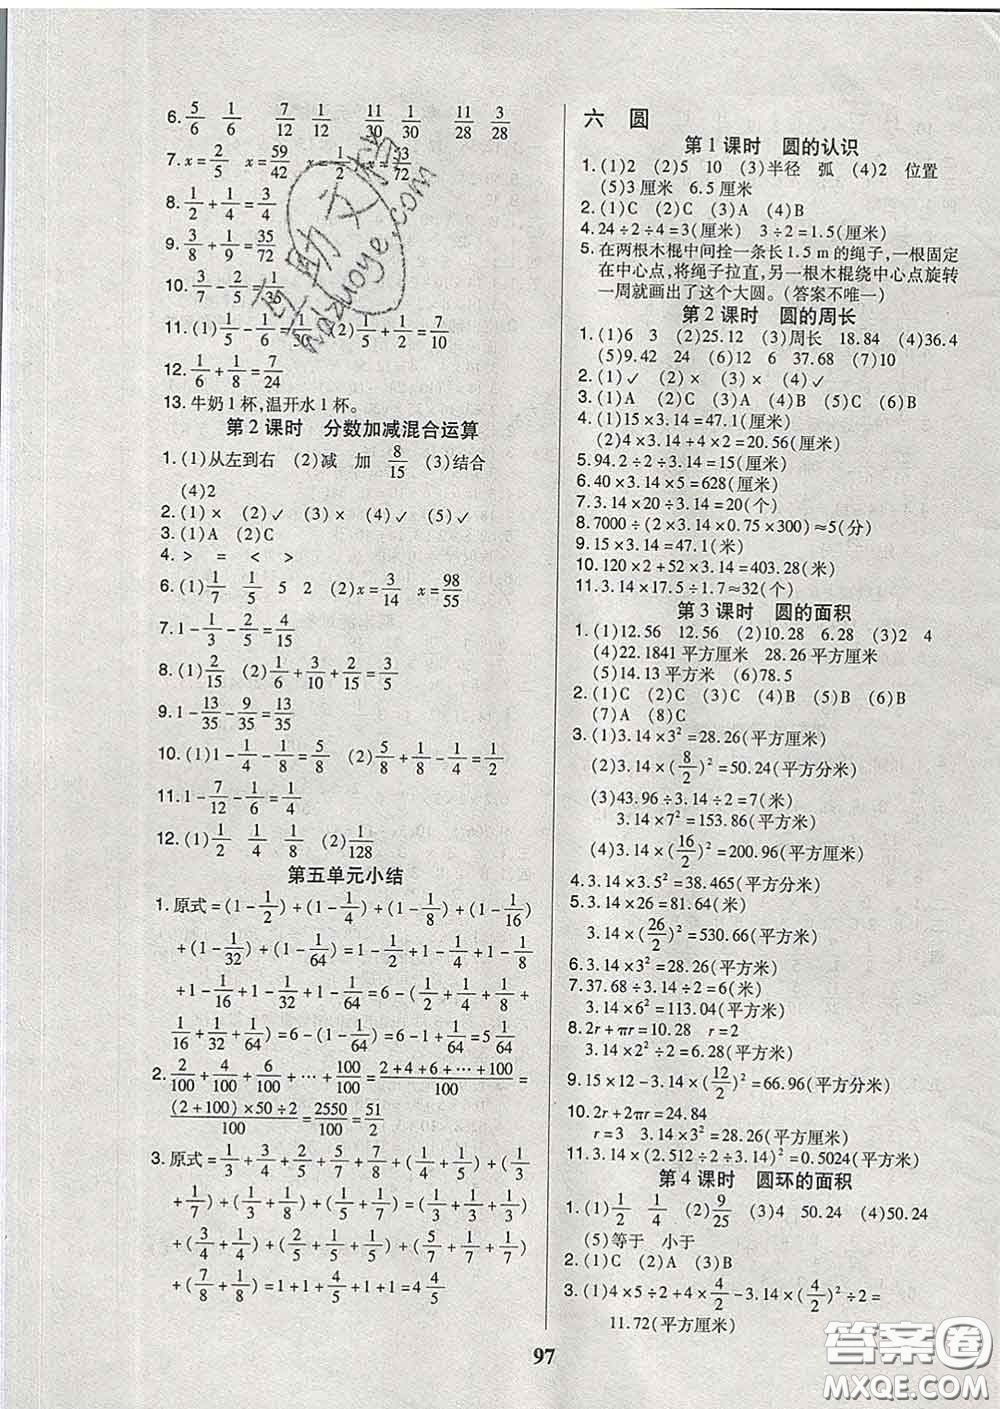 6. 5/6 1/6 7/12 1/12 11/30 1/30 11/28 3/28
7. x=2/5 x=59/42 x=1/2 x=
8. 1/2+1/4=3/4
9. 3/8+1/9=35/72
10. 3/7-2/5=1/35
11. (1)1/5-1/6=1/30 (2) =7/10
12. 1/6+1/8=7/24
13. 牛奶1杯,温开水1杯。
第2课时 分数加减混合运算
1. (1)从左到右 (2)减 加 8/15 (3)结合
(4)2
2. (1)× (2)✓ (3)× (4)✓ (5)✓
3. (1)A (2)C
4. > = < >
6. (1)1/7 1/5 5 2 (2)x=3/14 x=98/55
7. 1-1/3-2/5=4/15
8. (1)2/15 (2)1/5+3/10+1/10=3/5
9. 1-13/35-9/35=13/35
10. (1)1-1/4-1/8=5/8 (2)5/8+1/8-1/4=1/2
11. 1-7/12-1/6=1/4
12. (1)1/2 1/4 1/8 (2)1/128
第五单元小结
1. 原式=(1-1/2)+(1-1/4)+(1-1/8)+(1-1/16)
+(1-1/32)+(1-1/64)=1-1/2+1-1/4+1-1/8
+1-1/16+1-1/32+1-1/64=6-(1/2+1/4+1/8+
1/16+1/32+1/64)=6-(1-1/64)=6-1+1/64=5 1/64
2. 2/100+4/100+6/100+…+100/100=(2+4+6+…+100)/100=
((2+100)×50÷2)/100=2550/100=51/2
3. 原式=1/3+3/4+2/5+5/7+7/8+(1/4+1/5)+(1/3+
1/7)+(1/5+1/8)+(1/5+1/7)=(1/3+2/3)+
(3/4+1/4)+(2/5+1/5+1/5)+(5/7+1/7+1/7)
+(7/8+1/8)=1+1+4/5+1+1=4 4/5
六 圆
第1课时 圆的认识
1. (1)2 (2)5 10 (3)半径 弧 (4)2 位置
(5)3厘米 6.5厘米
2. (1)C (2)C (3)A (4)B
4. 24÷2÷4=3(厘米) 3÷2=1.5(厘米)
5. 在两根木棍中间拴一条长1.5m的绳子,一根固定
在中心点,将绳子拉直,另一根木棍绕中心点旋转
一周就画出了这个大圆。(答案不唯一)
第2课时 圆的周长
1. (1)6 3 (2)25.12 (3)周长 18.84 (4)36.4
(5)9.42 24 (6)12 6 37.68 (7)10
2. (1)✓ (2)× (3)× (4)✓
3. (1)A (2)C (3)A (4)B (5)C
4. (1)15×3.14=47.1(厘米)
(2)4×3.14+4×2=20.56(厘米)
5. 94.2÷2÷3.14=15(厘米)
6. 40×3.14×5=628(厘米)
7. 3.14×20÷3.14=20(个)
8. 7000÷(2×3.14×0.75×300)≈5(分)
9. 15×3.14=47.1(米)
10. 120×2+52×3.14=403.28(米)
11. 3.14×17.5÷1.7≈32(个)
第3课时 圆的面积
1. (1)12.56 12.56 (2)10.28 6.28 (3)2 4
(4)22.1841平方厘米 28.26平方厘米
(5)14.13平方厘米 (6)78.5
2. (1)C (2)C (3)C (4)B (5)B (6)B
(7)A (8)C
3. (1)3.14×3²=28.26(平方厘米)
(2)3.14×(8/2)²=50.24(平方分米)
(3)43.96÷3.14÷2=7(米)
3.14×7²=153.86(平方米)
(4)3.14×(16/2)²=200.96(平方厘米)
4. 3.14×3.5²=38.465(平方分米)
5. 3.14×26=81.64(米)
3.14×(26/2)²=530.66(平方米)
6. 3.14×3²=28.26(平方米)
7. 37.68÷3.14÷2=6(米)
3.14×6²=113.04(平方米)
8. 2r+πr=10.28 r=2
3.14×2²÷2=6.28(平方米)
9. 15×12-3.14×(12/2)²=66.96(平方分米)
10. 2r+2πr=24.84
r=3 3.14×3²=28.26(平方厘米)
11. 3.14×(2.512÷2÷3.14)²=0.5024(平方米)
第4课时 圆环的面积
1. (1)1/2 1/4 (2)9/25 (3)4 50.24 (4)50.24
(5)等于 小于
2. (1)C (2)A (3)B
3. (1)4×5÷2+4×4/2-3.14×(4/2)²÷2=
11.72(平方厘米)
97
互助文档
huzhuoye.com
答案圈
MXQE.COM